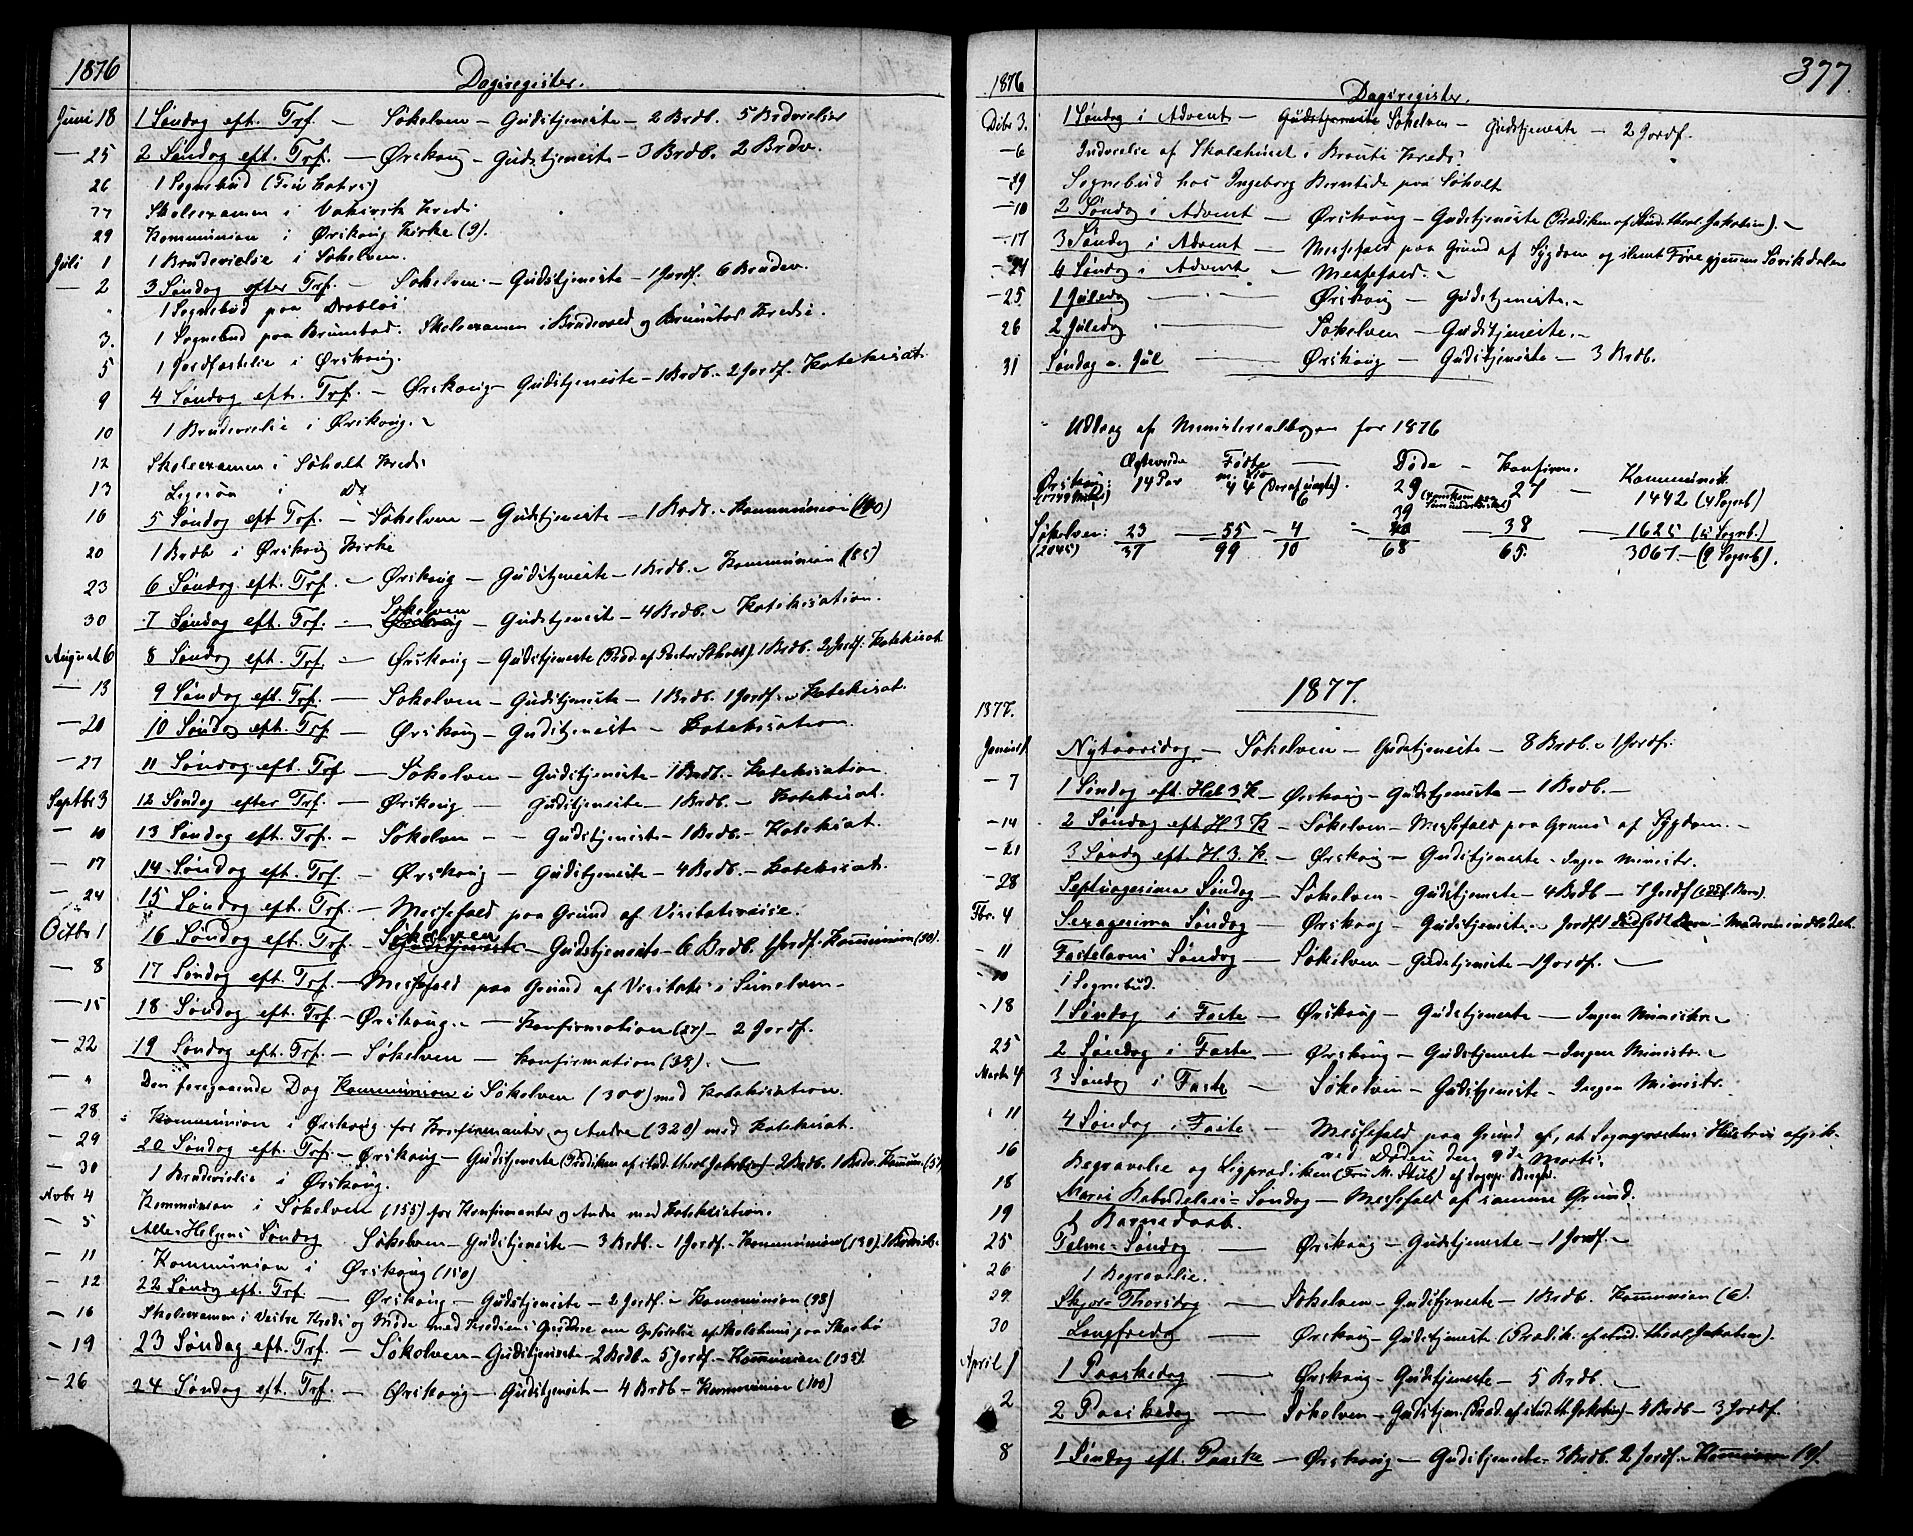 1876
Dagsregister.
Juni 18 1 Søndag eft. Trf. — Søkelven — Gudstjeneste — 2 Brdb. 5 Brdvielser
— 25 2 Søndag eft. Trf. — Ørskoug — Gudstjeneste — 3 Brdb. 2 Brdv.
26 1 Sognebud
27 Skoleexamen i Vaksvik Kreds
29 Kommunion i Ørskoug Kirke (9).
Juli 1 1 Brudevielse i Søkelven.
— 2 3 Søndag efter Trf. — Søkelven — Gudstjeneste — 1 Jordf. 6 Brudev.
" 1 Sognebud paa
3. 1 Sognebud paa Brunstad. Skoleexamen i Brudevold og Brunstad Kredse.
5 1 Jordfæstelse i Ørskoug.
9 4 Søndag eft. Trf. — Ørskoug — Gudstjeneste — 1 Brdb. — 2 Jordf. Katekisat.
10 1 Brudevielse i Ørskoug. —
12 Skoleexamen i Søholt Kreds
13 Ligesaa i Do
16 5 Søndag eft Trf. — Søkelven — Gudstjeneste — 1 Brdb. — Kommunion (100)
20 1 Brdb i Ørskoug Kirke
23 6 Søndag eft. Trf. — Ørskoug — Gudstjeneste — 1 Brdb. — Kommunion (85)
30 7 Søndag eft. Trf. — Ørskoug Søkelven — Gudstjeneste — 4 Brdb. — Katekisation.
August 6 8 Søndag eft. Trf. — Ørskoug — Gudstjeneste (Præd. af Pastor) 1 Brdb. 2 Jordf. Katekisat
— 13 9 Søndag eft. Trf. — Søkelven — Gudstjeneste — 1 Brdb. 1 Jordf. — Katekisat.
— 20 10 Søndag eft. Trf. — Ørskoug — Gudstjeneste — Katekisation.
— 27 11 Søndag eft. Trf — Søkelven — Gudstjeneste — 1 Brdb. — Katekisation
Septbr 3 12 Søndag efter Trf. — Ørskoug — Gudstjeneste — 1 Brdb. — Katekisat.
— 10 13 Søndag eft. Trf. — Søkelven — — Gudstjeneste — 1 Brdb. — Katekisat.
— 17 14 Søndag eft. Trf. — Ørskoug — Gudstjeneste — 4 Brdb. — Katekisat.
— 24 15 Søndag eft. Trf. — Messefald paa Grund af Visitatsreise.
Octbr 1 16 Søndag eft. Trf. — Søkelven Gudstjeneste — Gudstjeneste — 6 Brdb. 1 Jordf. Kommunion (90).
— 8 17 Søndag eft. Trf. — Messefald paa Grund af Visitats i Sunelven —
— 15 18 Søndag eft. Trf. — Ørskoug. — Konfirmation (27) — 2 Jordf.
— 22 19 Søndag eft. Trf. — Søkelven — Konfirmation (38). —
— " Den foregaaende Dag Kommunion i Søkelven (300) med Katekisation.
— 28 Kommunion i Ørskoug for Konfirmanter og Andre (320) med Katekisat.
— 29 20 Søndag eft. Trf. — Ørskoug — Gudstjeneste (Prædiken af stud. theol. Jakobsen) — 2 Brdb. 1 Brdv. Kommun. (57)
— 30 1 Brudevielse i Ørskoug.
Novbr 4 Kommunion i Søkelven (155) for Konfirmanter og Andre med Katekisation.
— 5 Alle Helgens Søndag Søkelven — Gudstjeneste — 3 Brdb. — 1 Jordf. — Kommunion (130).
— 11 Kommunion i Ørskoug (150)
— 12 22 Søndag eft. Trf. — Ørskoug — Gudstjeneste — 2 Jordf. — Kommunion (98)
— 16 Skoleexamen i Vestre Kreds og Møde med Kredsens Gaardbrugere om Opførelse af Skolehus paa
— 19 23 Søndag eft. Trf. — Søkelven — Gudstjeneste — 2 Brdb. — 5 Jordf — Kommunion (135)
— 26 24 Søndag eft. Trf. — Ørskoug — Gudstjeneste — 4 Brdb — Kommunion (100)
377.
1876
Dagsregister.
Dcbr 3. 1 Søndag i Advent — Gudstjeneste Søkelven — Gudstjeneste — 2 Jordf.
— 6 Indvielse af Skolehuset i Brauts Kreds.
— 9 Sognebud hos Ingeborg paa Søholt
— 10 2 Søndag i Advent — Ørskoug — Gudstjeneste (Prædiken af Stud. theol. Jakobsen). —
— 17 3 Søndag i Advent — Messefald paa Grund af Sygdom og slemt Føre gjennem
— 24 4 Søndag i Advent — Messefald. —
— 25 1 Juledag — Ørskoug — Gudstjeneste. —
26 2 Juledag — Søkelven — Gudstjeneste. —
31 Søndag e. Jul — Ørskoug — Gudstjeneste — 3 Brdb.
Uddrag af Ministerialbogen for 1876
Ægteviede Fødte — Døde — Konfirm. Kommunik.
Ørskoug: 14 Par 44 (Deraf uægte) 6 29 27 — 1442 (4 Sognb)
Søkelven: 23 — 55 — 4 — 39 — 38 — 1625 (5 Sognb.)
(2045) 37 99 10 68 65 3067 — (9 Sognb).
1877.
1877.
Januar 1 Nytaarsdag — Søkelven — Gudstjeneste — 8 Brdb. — 1 Jordf.
— 7 1 Søndag eft. Hel 3 K — Ørskoug — Gudstjeneste — 1 Brdb. —
— 14 2 Søndag eft. H 3 K — Søkelven — Messefald paa Grund af Sygdom. —
— 21 3 Søndag eft H. 3. K. — Ørskoug — Gudstjeneste — Ingen Ministr.
— 28 Septuagesima Søndag — Søkelven — Gudstjeneste — 4 Brdb — 1 Jordf
Fbr. 4 Sexagesima Søndag — Ørskoug — Gudstjeneste. — Jordf. 1 dødfødt Barn —
— 11 Fastelavns Søndag — Søkelven — Gudstjeneste — 1 Jordf. —
— 10 1 Sognebud.
— 18 1 Søndag i Faste — Ørskoug — Gudstjeneste — Ingen Ministr. —
25 2 Søndag i Faste — Ørskoug — Gudstjeneste — Ingen Ministr. —
Marts 4 3 Søndag i Faste — Søkelven — Gudstjeneste — Ingen Ministr.
11 4 Søndag i Faste — Messefald paa Grund af, at Sognepræstens Hustru afgik
ved Døden den 9de Marts.
16 Begravelse og Ligprædiken (Fru M. Stub) af
18 Mariæ Bebudelses-Søndag — Messefald af samme Grund.
19 1 Barnedaab.
25 Palme-Søndag — Ørskoug — Gudstjeneste — 1 Jordf —
26 1 Begravelse.
29. Skjær-Thorsdag — Søkelven — Gudstjeneste — 1 Brdb. Kommunion (6).
30 Langfredag — Ørskoug — Gudstjeneste (Prædik. af stud. theol. Jakobsen).
April 1 1 Paaskedag — Ørskoug — Gudstjeneste — 5 Brdb. —
2 2 Paaskedag — Søkelven — Gudstjen. (Præd. af stud. th. Jakobsen) — 4 Brdb — 3 Jordf.
8 1 Søndag eft. Paaske — Ørskoug — Gudstjeneste — 3 Brdb. 2 Jordf. — Kommunion 19).